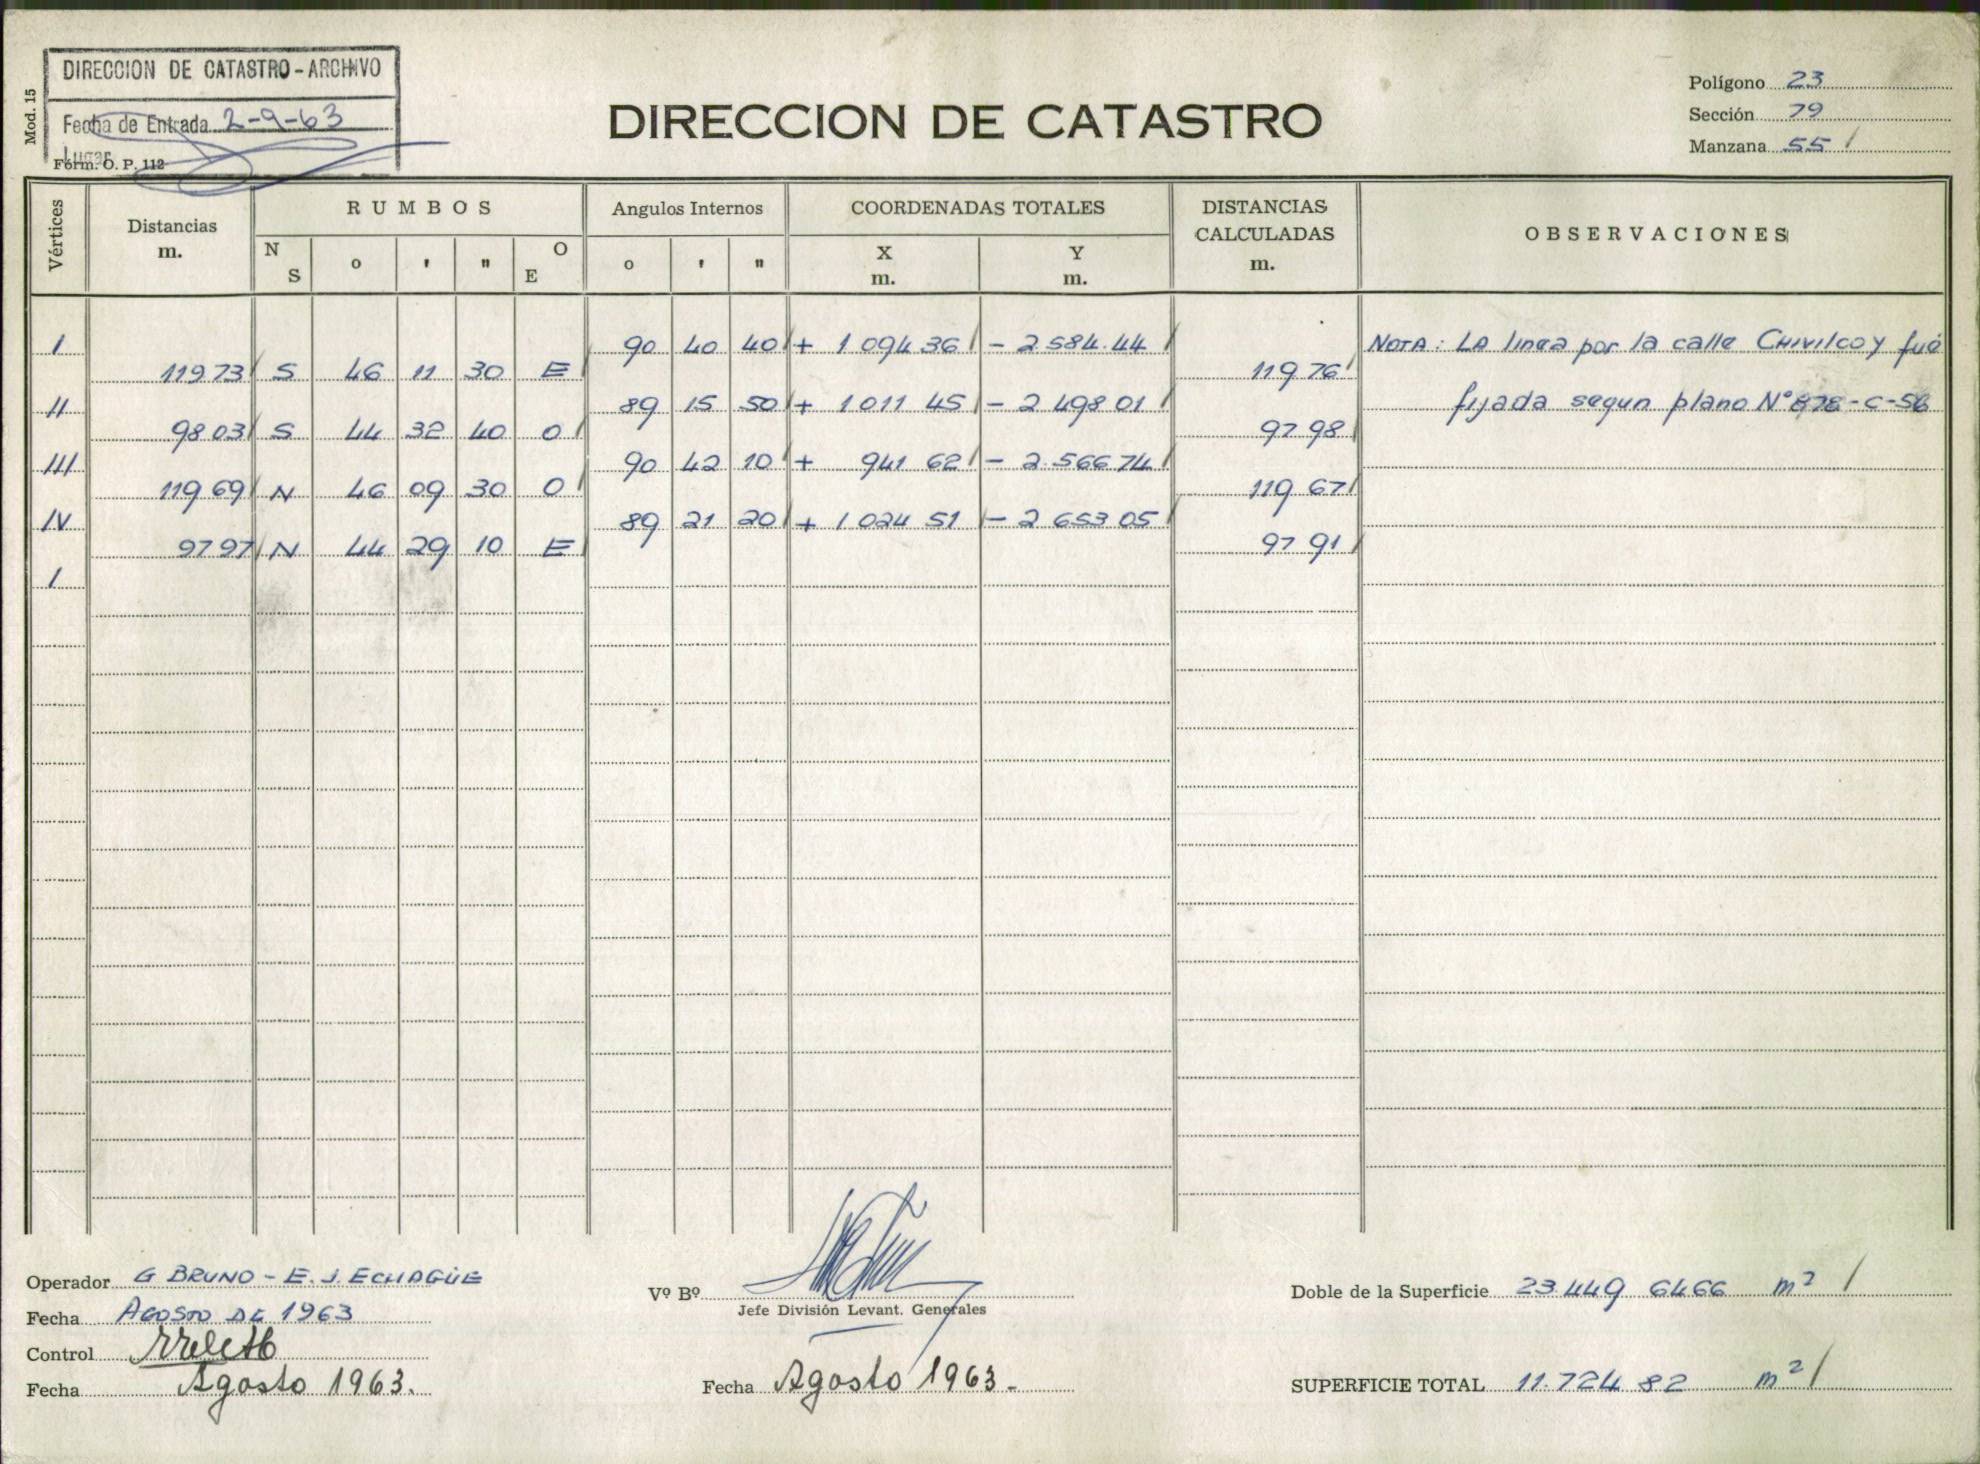 DIRECCION DE CATASTRO - ARCHIVO
Fecha de Entrada 2-9-63
Lugar
Mod. 15
Form. O. P. 112
DIRECCION DE CATASTRO
Polígono 23
Sección 79
Manzana 55 /
Vértices
Distancias
m.
RUMBOS
N S o ' " O E
Angulos Internos
o ' "
COORDENADAS TOTALES
X m. Y m.
DISTANCIAS
CALCULADAS
m.
OBSERVACIONES
I 90 40 40 + 1 094 36 - 2.584.44 NOTA: LA linea por la calle CHIVILCOY fué
119 73 S 46 11 30 E 119 76
II 89 15 50 + 1 011 45 - 2 498 01 fijada segun plano N°
98 03 S 44 32 40 O 97 98
III 90 42 10 + 941 62 - 2.566 74
119 69 N 46 09 30 O 119 67
IV 89 21 20 + 1 024 51 - 2 653 05
97 97 N 44 29 10 E 97 91
I
Operador G BRUNO - E. J. ECHAGÜE
Fecha AGOSTO DE 1963
Control
Fecha Agosto 1963.
Vº Bº
Jefe División Levant. Generales
Fecha Agosto 1963.-
Doble de la Superficie 23.449 6466 m² /
SUPERFICIE TOTAL 11.724 82 m² /